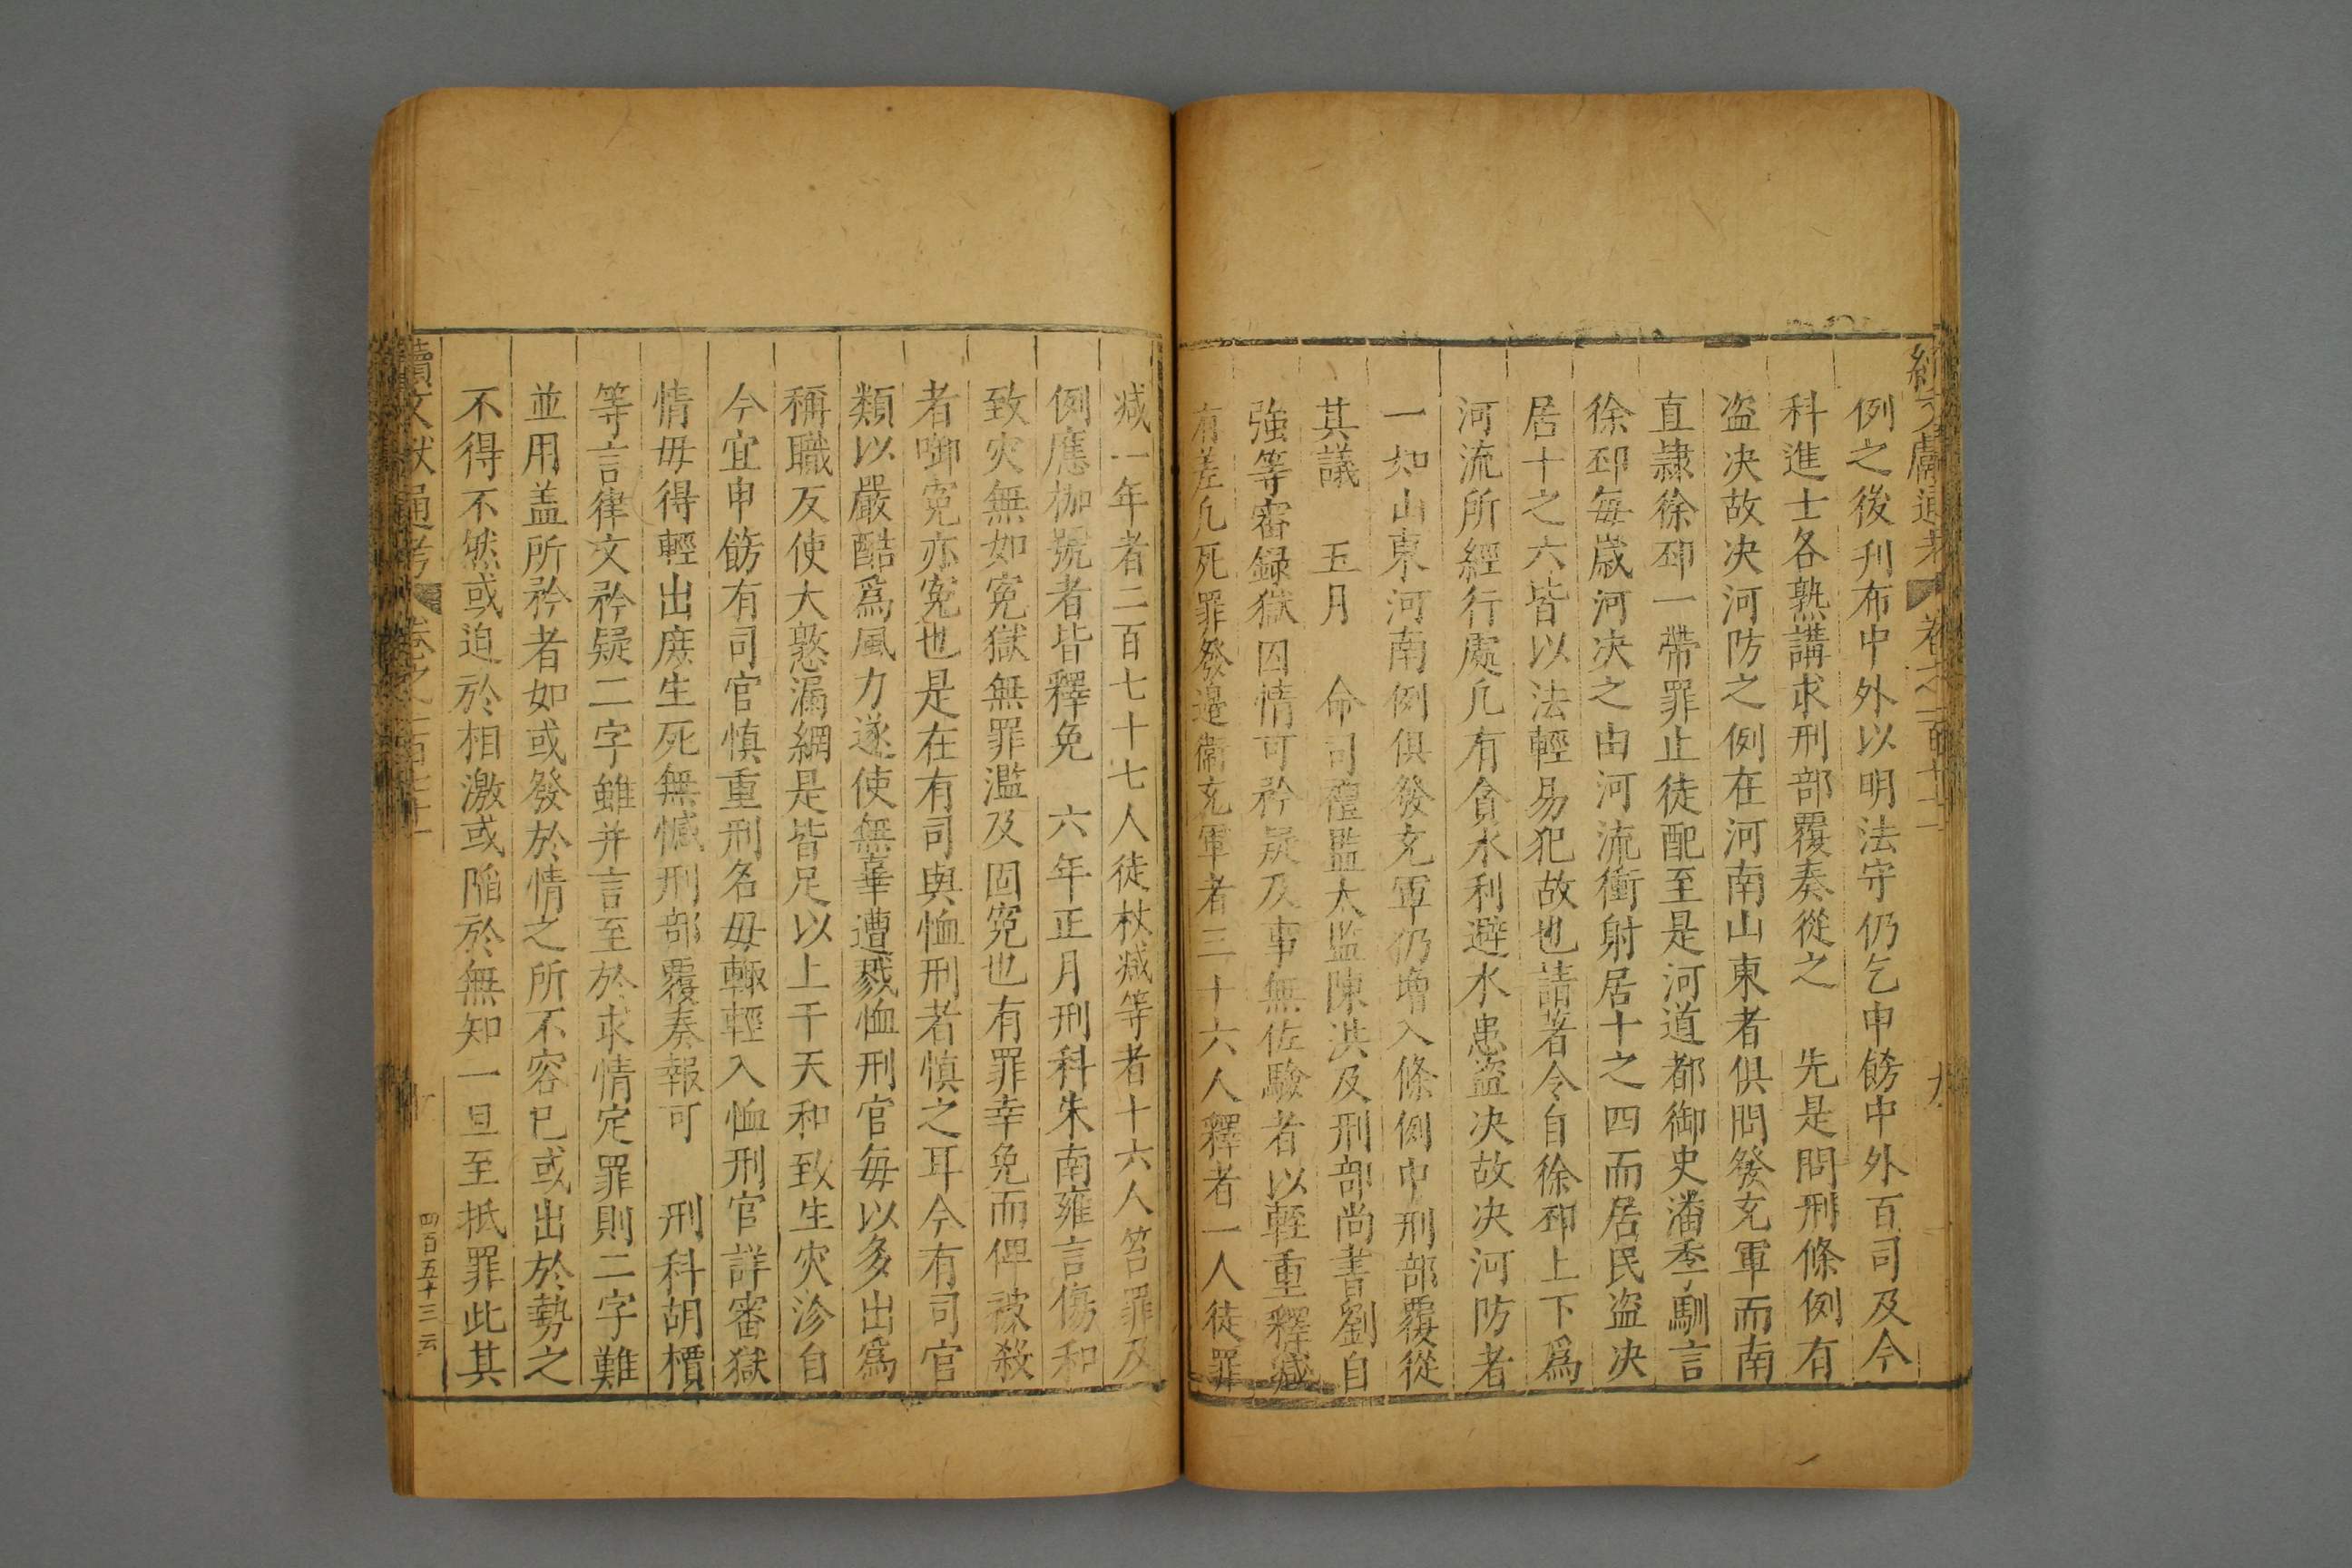 例之後刋布中外以明法守仍乞申餝中外百司及今
科進士各熟講求刑部覆奏從之 先是問刑條例有
盗决故决河防之例在河南山東者俱問發充軍而南
直隷徐邳一帶罪止徒配至是河道都御史潘季馴言
徐邳毎歲河决之由河流衝射居十之四而居民盗决
居十之六皆以法輕易犯故也請著令自徐邳上下爲
河流所經行處凡有貪水利避水患盗决故决河防者
一如山東河南例俱發充軍仍增入條例中刑部覆從
其議 五月 命司禮監太監陳洪及刑部尚書劉自
強等審録獄囚情可矜疑及事無佐驗者以輕重釋减
有差凡死罪發邉衛充軍者三十六人釋者一人徒罪
减一年者二百七十七人徒杖减等者十六人笞罪及
例應枷號者皆釋免 六年正月刑科朱南雍言傷和
致灾無如寃獄無罪濫及固寃也有罪幸免而俾被殺
者啣寃亦寃也是在有司與恤刑者慎之耳今有司官
類以嚴酷爲風力遂使無辜遭戮恤刑官毎以多出爲
稱職反使大憝漏網是皆足以上干天和致生灾沴自
今宜申餝有司官慎重刑名毋輙輕入恤刑官詳審獄
情毋得輕出庻生死無憾刑部覆奏報可 刑科胡檟
等言律文矜疑二字雖并言至於求情定罪則二字難
並用盖所矜者如或發於情之所不容已或出於勢之
不得不然或迫於相激或陥於無知一旦至抵罪此其
續文獻通考
四百五十三 云